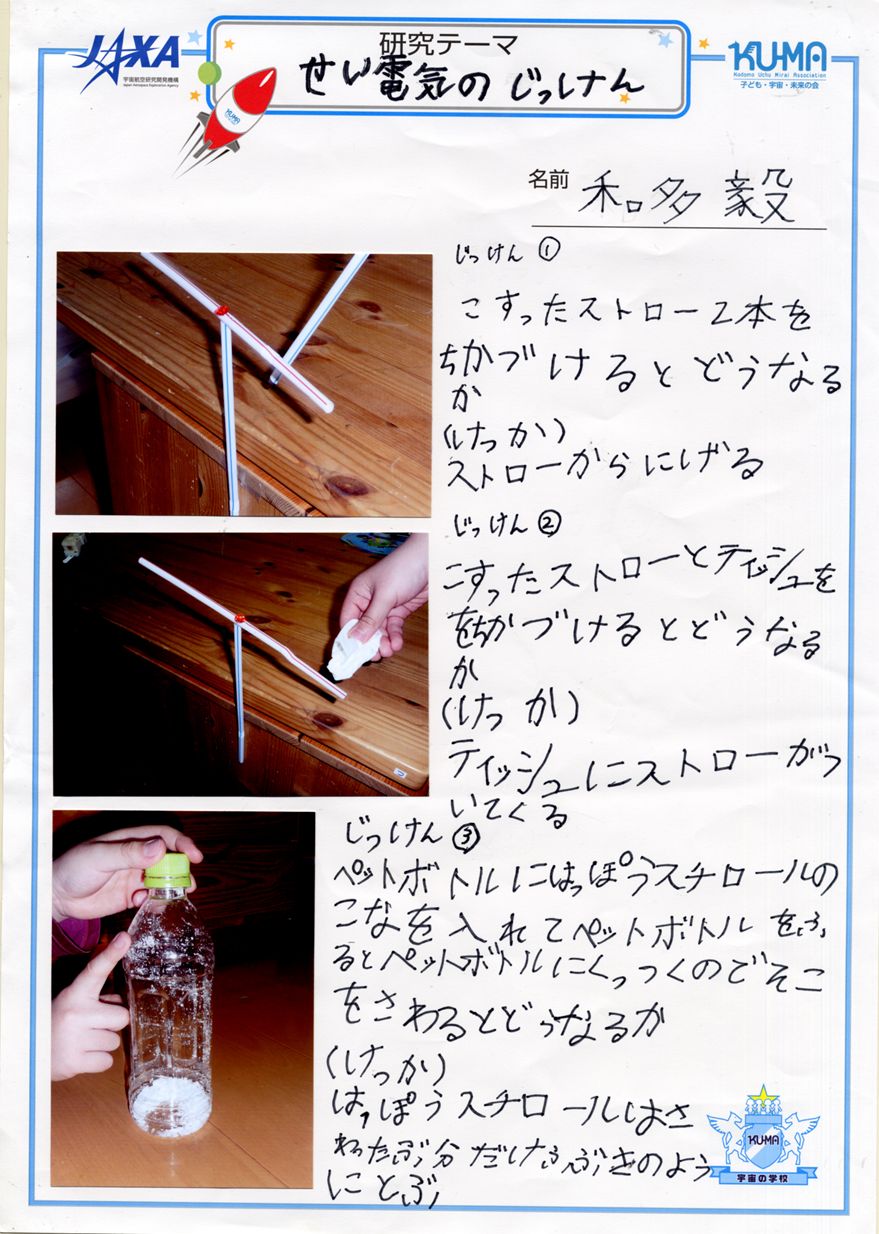 JAXA
宇宙航空研究開発機構
Japan Aerospace Exploration Agency
研究テーマ
せい電気のじっけん
KU-MA
Kodomo Uchu Mirai Association
子ども・宇宙・未来の会
KU-MA
名前 和多 毅
じっけん①
こすったストロー2本を
ちかづけるとどうなる
か
(けっか)
ストローからにげる
じっけん②
こすったストローとティッシュを
をちかづけるとどうなる
か
(けっか)
ティッシュにストローがつ
いてくる
じっけん③
ペットボトルにはっぽうスチロールの
こなを入れてペットボトルをふ
るとペットボトルにくっつくのでそこ
をさわるとどうなるか
(けっか)
はっぽうスチロールはさ
わったぶ分だけふぶきのよう
にとぶ
KU-MA
宇宙の学校